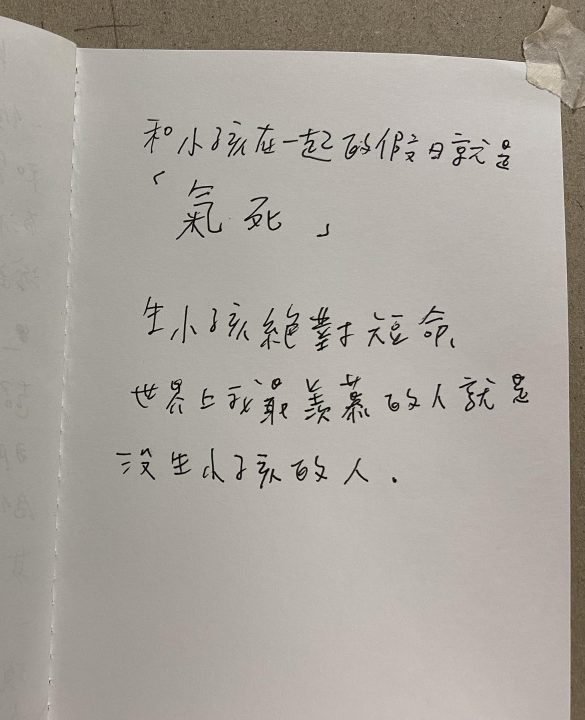 和小孩在一起的假日就是
「氣死」
生小孩絕對短命、
世界上我最羨慕的人就是
沒生小孩的人.